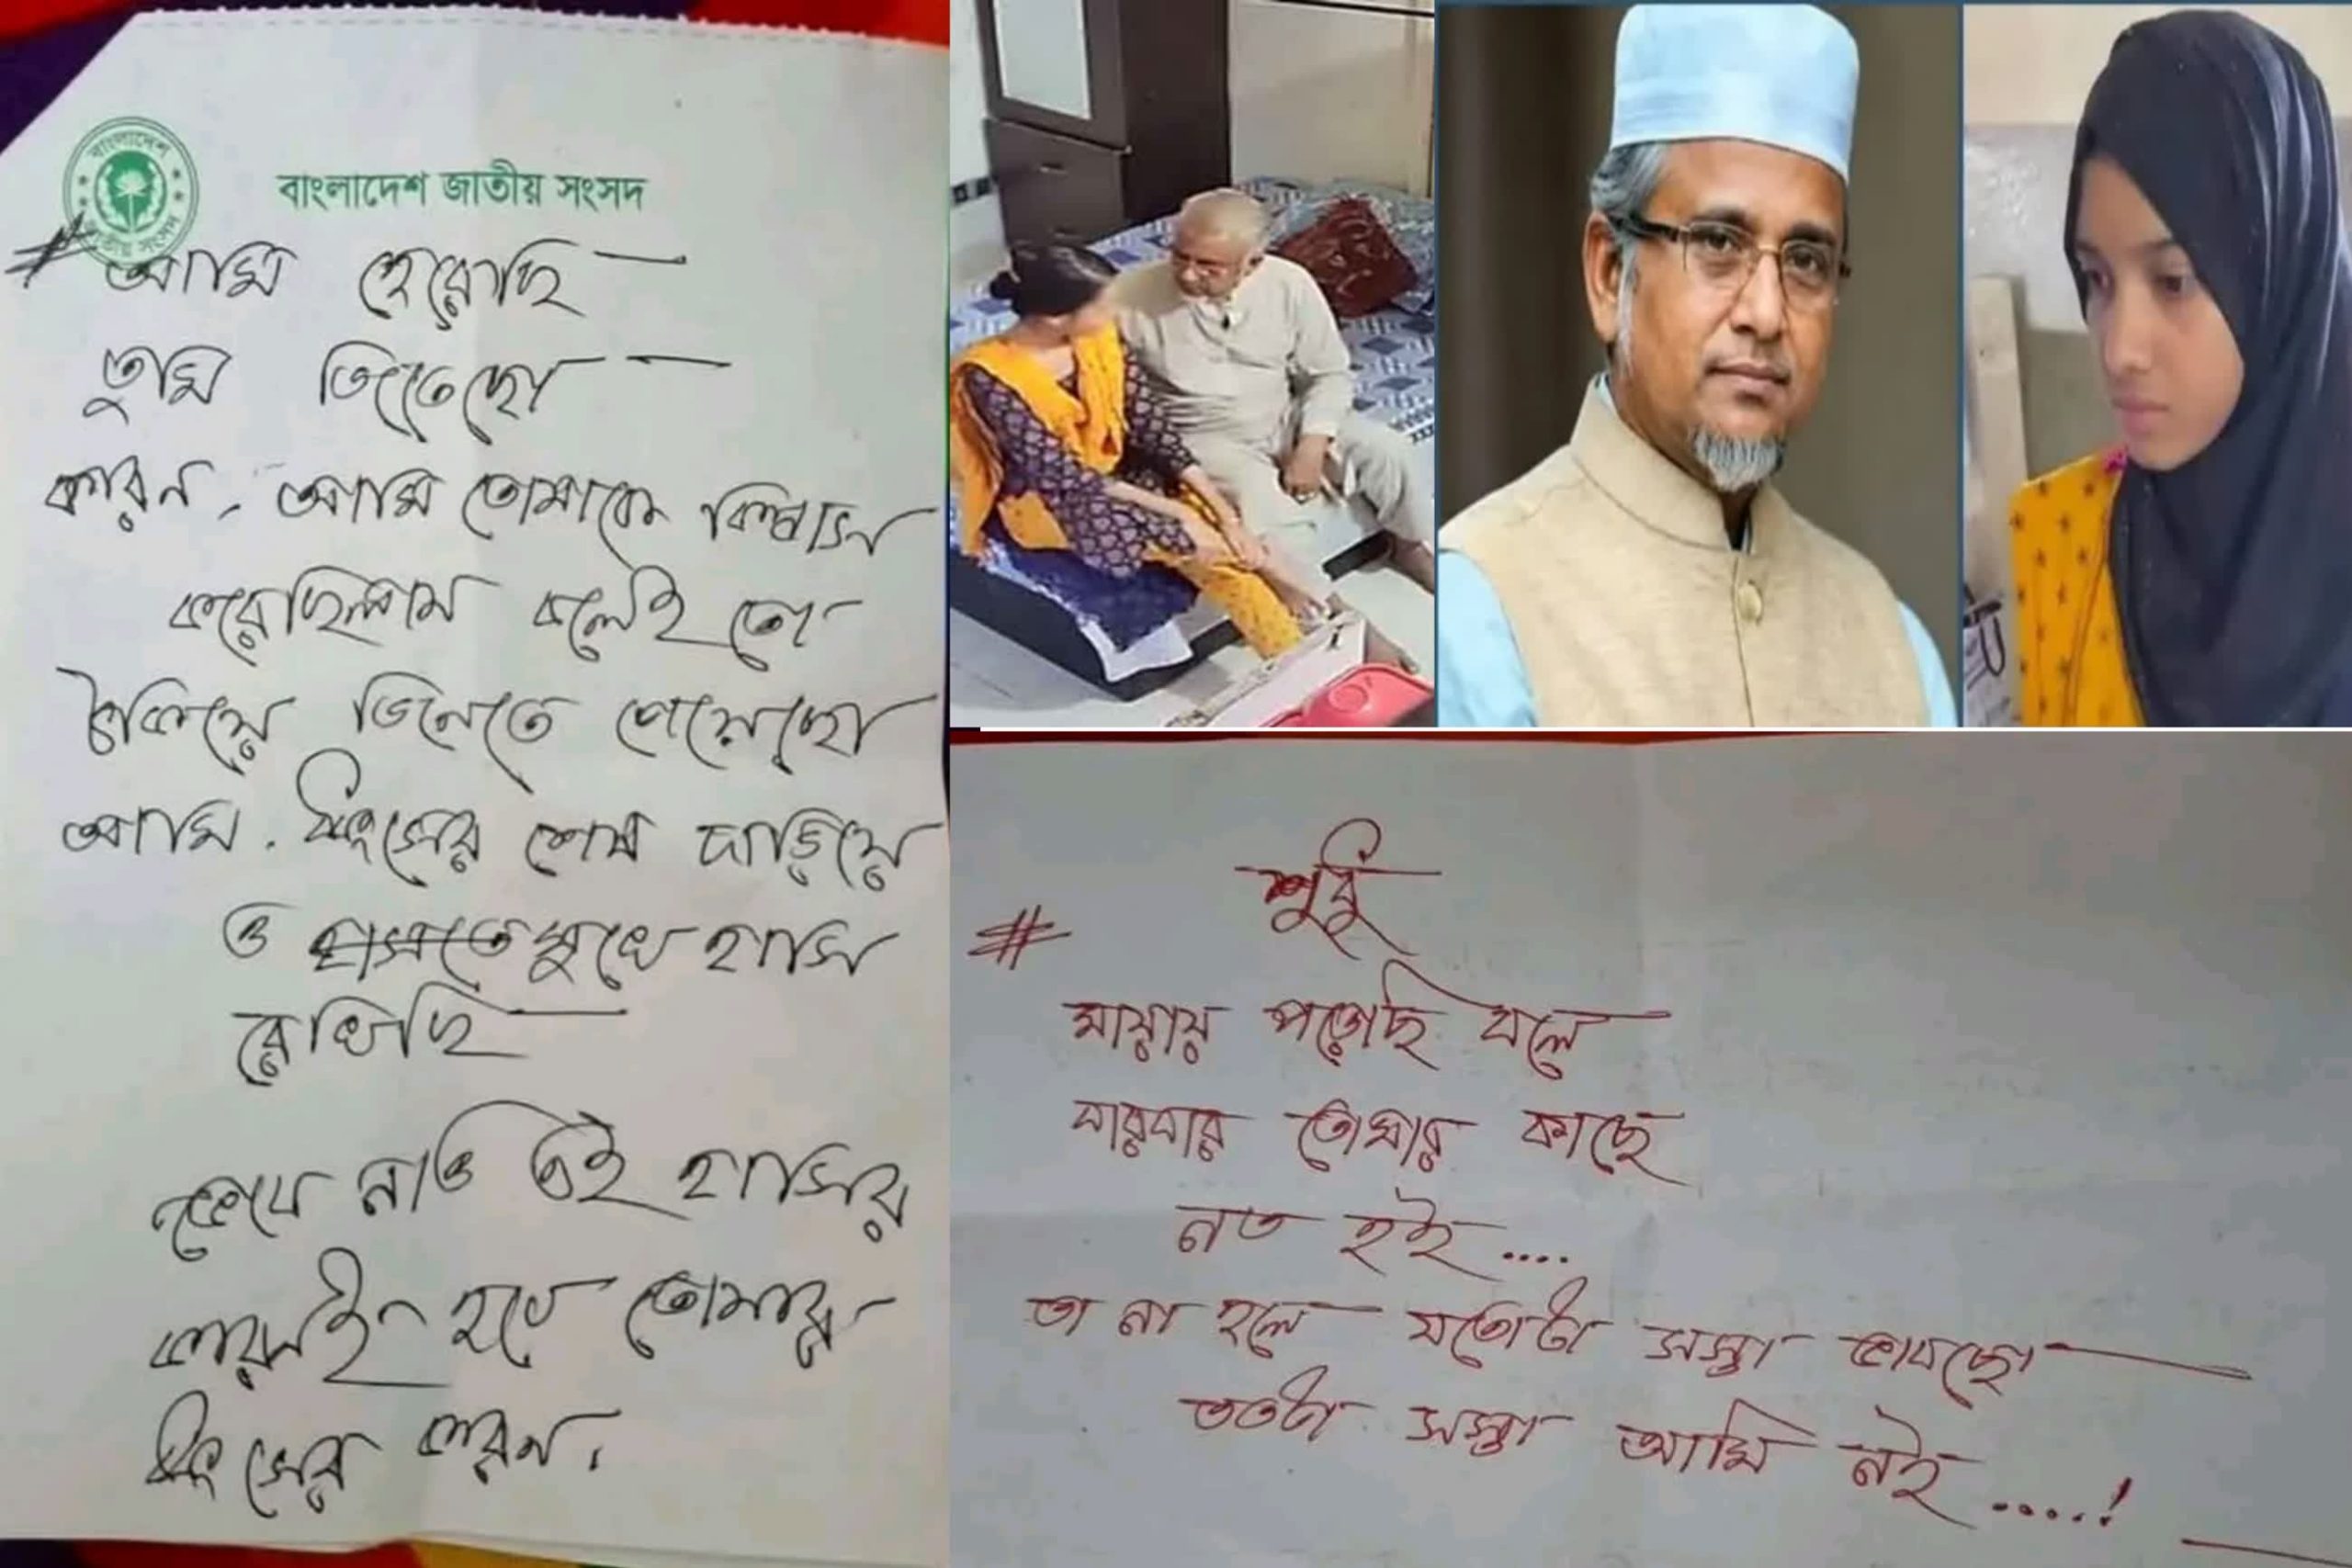 বাংলাদেশ
জাতীয় সংসদ
বাংলাদেশ জাতীয় সংসদ
# আমি হেরেছি —
তুমি জিতেছো —
কারন, আমি তোমাকে বিশ্বাস
করেছিলাম বলেই তো
ঠকিয়ে জিততে পেরেছো
আমি. ধ্বংসের শেষ দাড়িয়ে
ও হাসতে মুখে হাসি
রেখেছি —
যেনে নাও এই হাসির
কারনই হবে তোমার
ধ্বংসের কারন।
# শুধু
মায়ায় পড়েছি বলে
বারবার তোমার কাছে
নত হই....
তা না হলে যতোটা সস্তা ভাবছো —
ততটা সস্তা আমি নই.....!